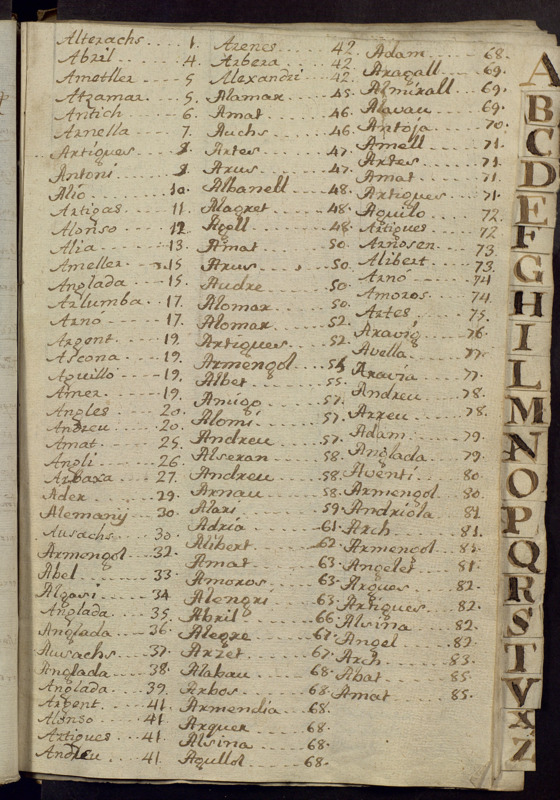 Alterachs.... 1.
Abril.... 4.
Ametller.... 5
Atzamar.... 5.
Antich.... 6.
Arnella.... 7.
Artigues.... 8.
Antoni.... 8.
Alió.... 10.
Artigas.... 11.
Alonso.... 12
Alia.... 13.
Ameller.... 15
Anglada.... 15.
Azlumba.... 17.
Arnó.... 17.
Argent.... 19.
Ascona.... 19.
Aguillo.... 19.
Amer.... 19.
Angles.... 20.
Andreu.... 20.
Amat.... 25.
Angli.... 26.
Arbaxa.... 27.
Ader.... 29.
Alemany.... 30.
Ausachs.... 30.
Armengol.... 32.
Abel.... 33.
Algasi.... 34.
Anglada.... 35.
Anglada.... 36.
Ausachs.... 37.
Anglada.... 38.
Anglada.... 39.
Argent.... 41.
Alonso.... 41
Artigues.... 41.
Andreu.... 41.
Arenes.... 42.
Arbera.... 42.
Alexandri.... 42.
Alamar.... 45.
Amat.... 46.
Auchs.... 46.
Artes.... 47.
Arus.... 47.
Albanell.... 48.
Alagret.... 48.
Agell.... 48.
Amat.... 50.
Arus.... 50.
Audre.... 50.
Alomar.... 50.
Alomar.... 52.
Artigues.... 52.
Armengol.... 54
Albet.... 55.
Amigo.... 57.
Alomi.... 57.
Andreu.... 57.
Alseran.... 58.
Andreu.... 58.
Arnau.... 58.
Alari.... 59.
Adria.... 61.
Alibert.... 62.
Amat.... 63.
Amoros.... 63.
Alengri.... 63.
Abril.... 66.
Alegre.... 67.
Arzet.... 67.
Alabau.... 68.
Arbos.... 68.
Armendia.... 68.
Arquer.... 68.
Alsina.... 68.
Agullol.... 68.
Adam.... 68.
Aragall.... 69.
Almirall.... 69.
Alavau.... 69.
Antoja.... 70.
Amell.... 71.
Artes.... 71.
Amat.... 71.
Artigues.... 71.
Aguilo.... 72.
Artigues.... 72
Arnosen.... 73
Alibert.... 73.
Arnó.... 74
Amoros.... 74.
Artes.... 75.
Aravig.... 76.
Avella.... 77.
Aravia.... 77.
Andreu.... 78.
Arreu.... 78.
Adam.... 79.
Anglada.... 79.
Aventi.... 80
Armengol.... 80.
Andriola.... 81
Arch.... 81.
Armengol.... 81.
Angelet.... 81.
Argues.... 82.
Artigues.... 82.
Alsina.... 82.
Angel.... 82.
Arch.... 83.
Abat.... 85.
Amat.... 85.
A
B
C
D
E
F
G
H
I
L
M
N
O
P
Q
R
S
T
V
X
Z